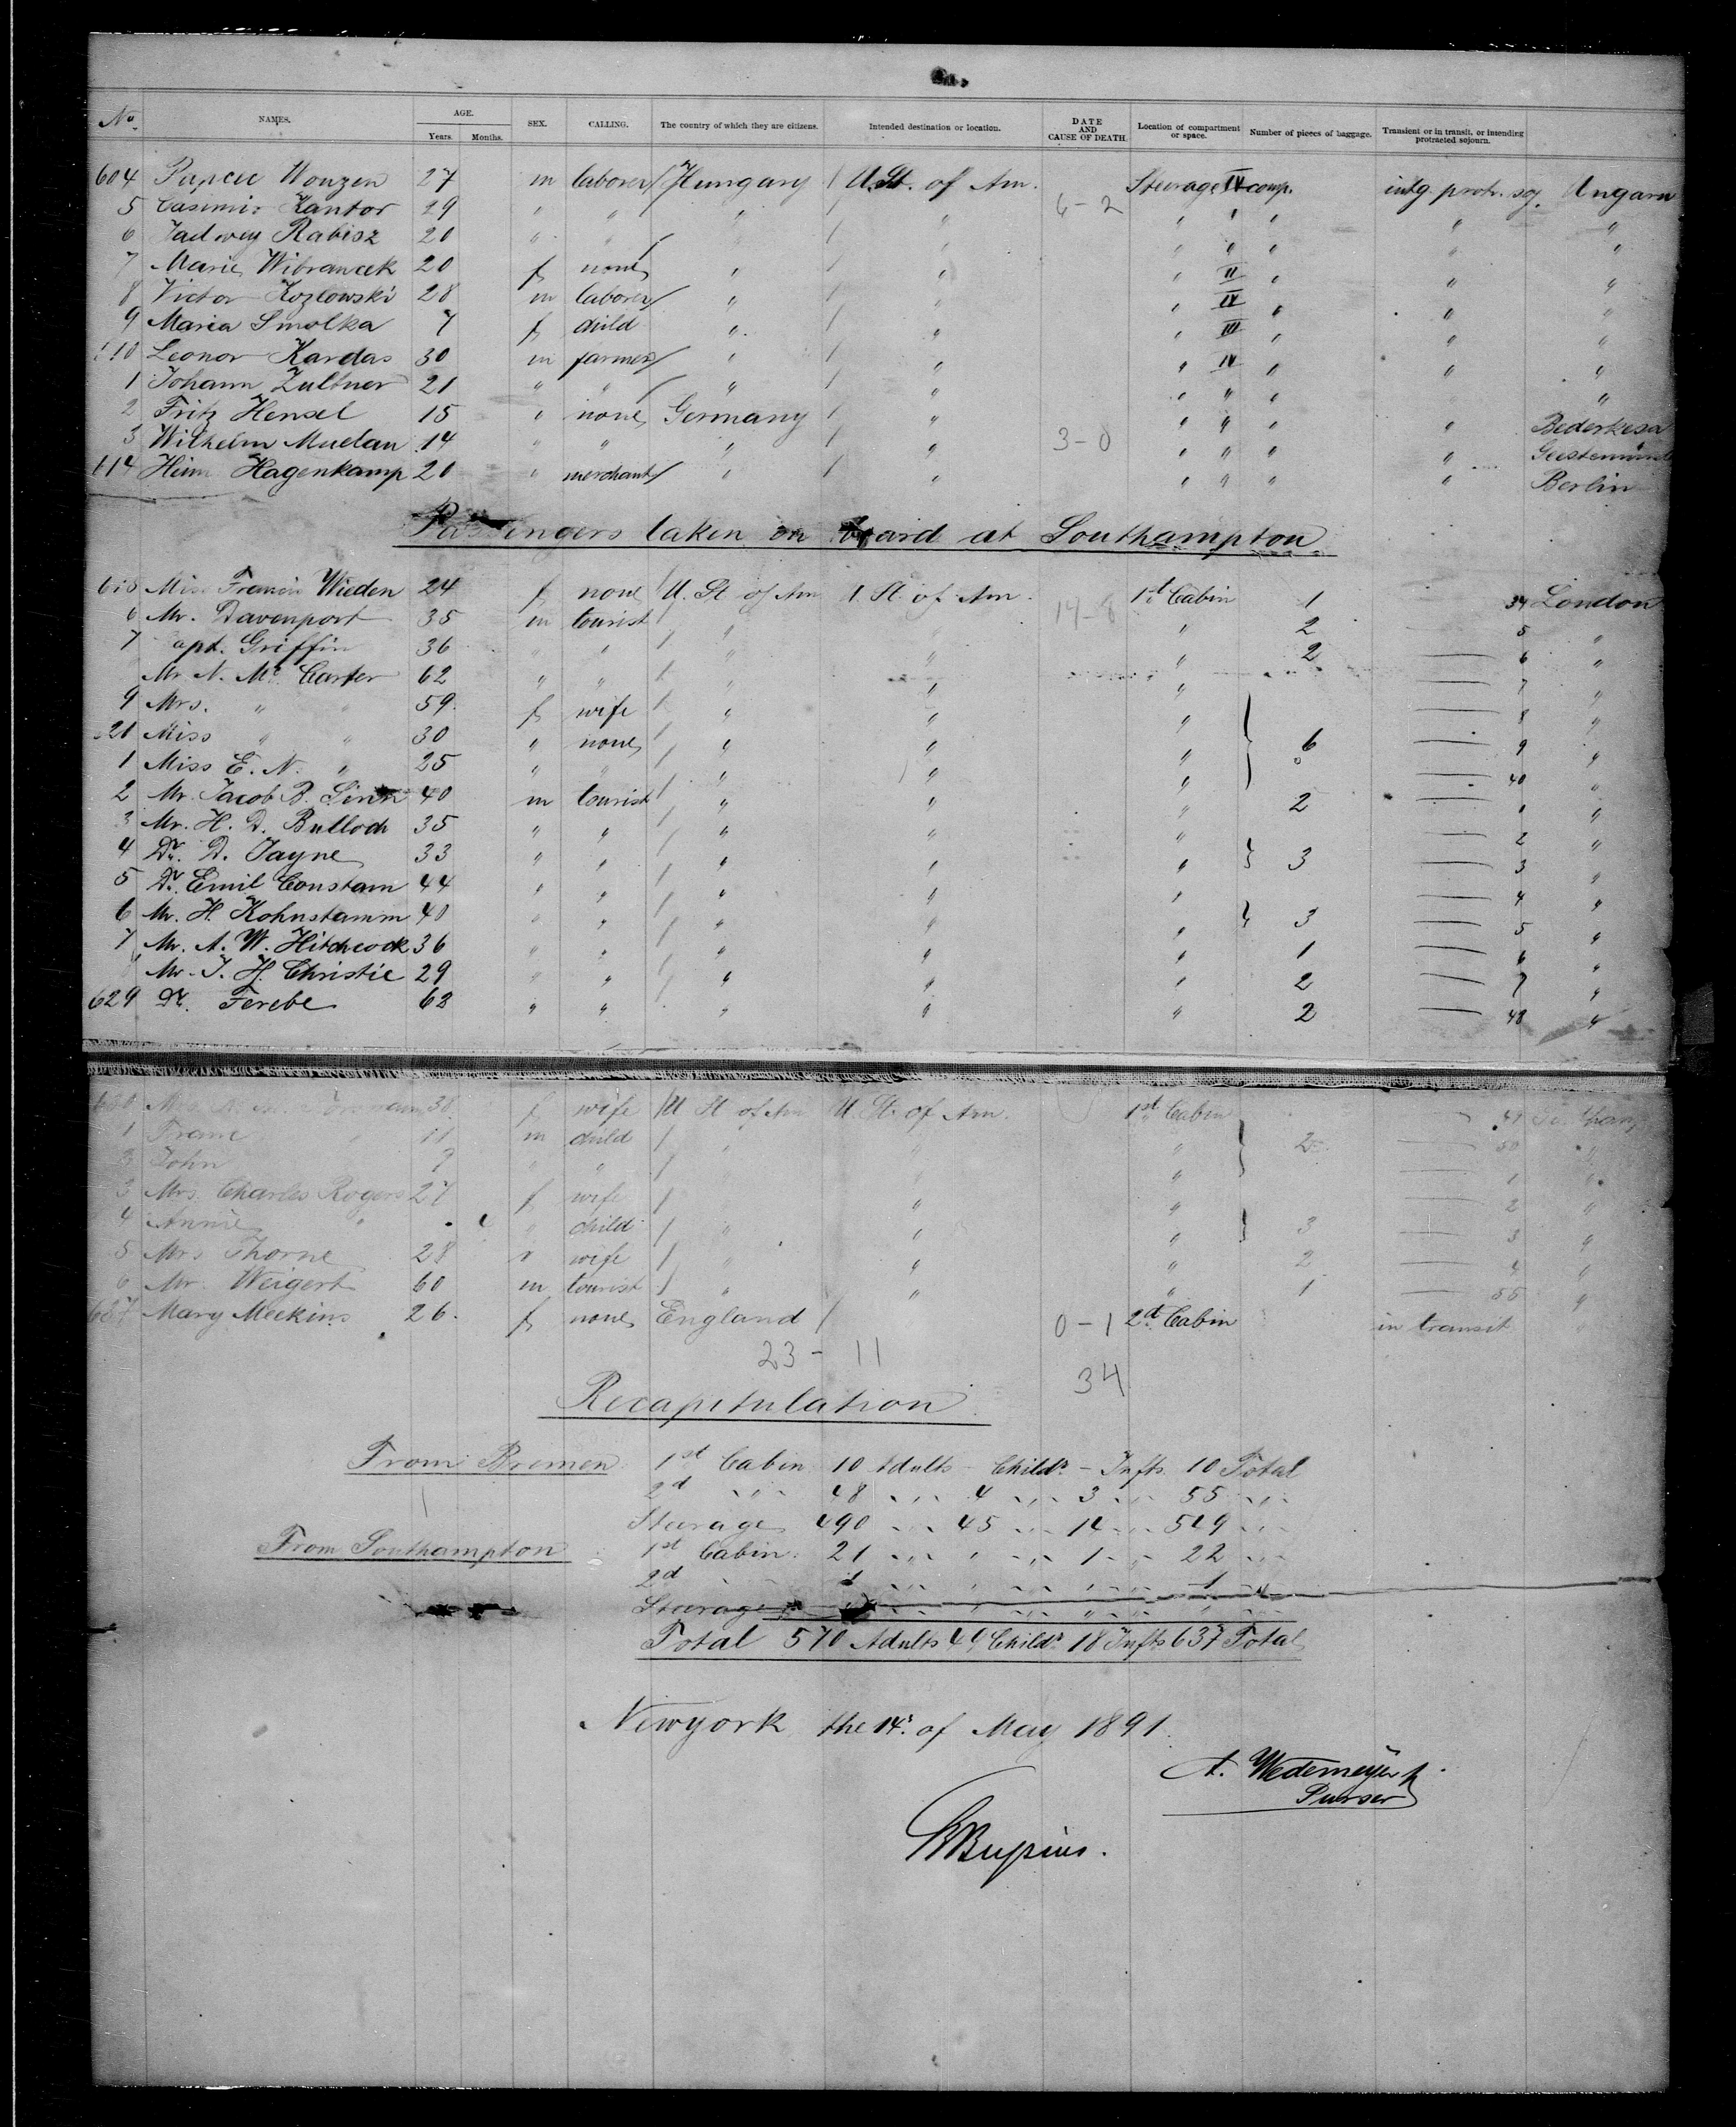 No. NAMES. AGE. Years. Months. SEX. CALLING. The country of which they are citizens. Intended destination or location. DATE AND CAUSE OF DEATH. Location of compartment or space. Number of pieces of baggage. Transient or in transit, or intending protracted sojourn.
604 Wouzen 27 m laborer Hungary U. St. of Am. Steerage IV comp. intg. protr. soj. Ungarn
5 Casimir Kantor 29 " " " / " 6-2 " " " " "
6 Rabisz 20 " " " / " " " " " "
7 Marie Wibrancek 20 f none " / " " II " " "
8 Victor Kozlowski 28 m laborer " / " " IV " " "
9 Maria Smolka 7 f child " / " " III " " "
610 Leonor Kardas 30 m farmer " / " " IV " " "
1 Johann Zultner 21 " " " / " " " " " "
2 Fritz Hensel 15 " none Germany / " " " " " Bederkesa
3 Wilhelm 14 " " " / " 3-0 " " " "
614 Hagenkamp 20 " merchant " / " " " " " Berlin
Passengers taken on board at Southampton
Wieden 24 f none U. St. of Am St. of Am. 14-8 1st Cabin 1 34 London
6 Mr. Davenport 35 m tourist " " " 2 5 "
7 Capt. Griffin 36 " " " " " 2 6 "
Mr. N. Mc. Carter 62 " " " " " 7 "
9 Mrs. " " 59 f wife " " " 8 "
21 Miss " " 30 " none " " " 6 9 "
1 Miss E. N. " 25 " " " " " 40 "
2 Mr. Jacob B. 40 m tourist " " " 2 1 "
3 Mr. H. D. Bulloch 35 " " " " " 2 "
4 Dr. D. Jayne 33 " " " " " 3 3 "
5 Dr. Emil Constam 44 " " " " " 4 "
6 Mr. H. Kohnstamm 40 " " " " " 3 5 "
7 Mr. A. W. Hitchcock 36 " " " " " 1 6 "
Mr. J. H. Christie 29 " " " " " 2 7 "
629 Dr. Ferebe 62 " " " " " 2 48 "
630 38 f wife U. St. of Am U. St. of Am. 1st Cabin
1 Franc " 11 m child " " " 2 50 "
John 9 " " " " " 1 "
3 Mrs. Charles Rogers 27 f wife " " " 2 "
4 Annie " 4 " child " " " 3 3 "
5 Mrs Thorne 28 " wife " " " 2 4 "
6 Mr. Weigert 60 m tourist " " " 1 55 "
637 Mary Meekins 26. f none England / 0-1 2d Cabin in transit "
23 - 11 34
Recapitulation
From Bremen 1st Cabin 10 Adults - Childr. - Infts. 10 Total
2d " 48 " 4 " 3 " 55 "
Steerage 490 " 45 " 14 " 549 "
From Southampton 1st Cabin. 21 " " " 1 " 22 "
2d " 1 " " " " " 1 "
Steerage " " " " " " " "
Total 570 Adults 49 Childr. 18 Infts 637 Total
Newyork the 14. of May 1891.
A. Wedemeyer
Purser